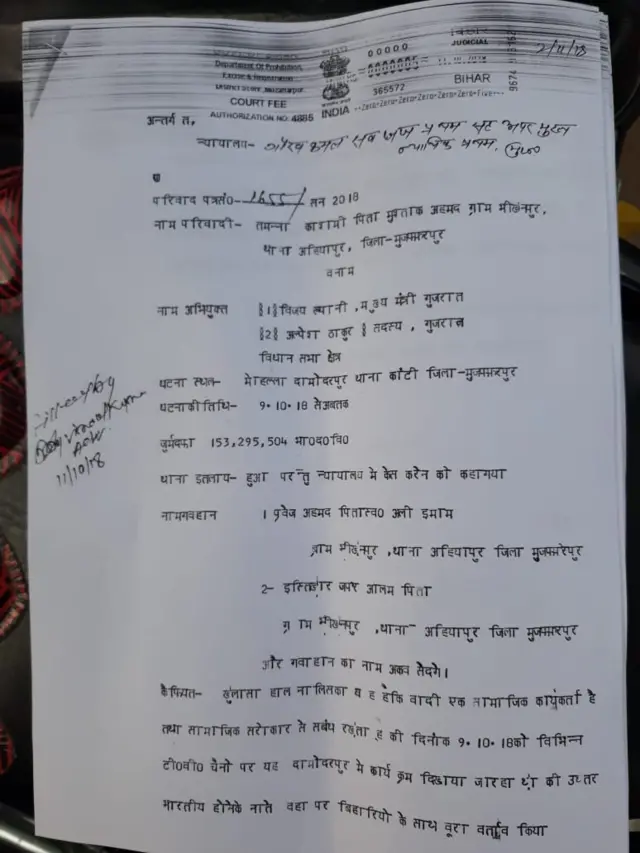 Department Of Prohibition,
Excise & Registration
District Score, Muzaffarpur
COURT FEE
AUTHORIZATION NO: 4885
INDIA
00000
365572
JUDICIAL
BIHAR
-Zero-Zero-Zero-Zero-Zero-Five-
2/11/18
अन्तर्गत,
न्यायालय- गौरव कमल सब जज प्रथम सह अपर मुख्य
न्यायिक प्रथम, मुज०
परिवाद पत्रसं०- 1655/ सन 2018
नाम परिवादी- तमन्ना हाशमी पिता मुस्ताक अहमद ग्राम भीखनपुर,
थाना अहियापुर, जिला-मुजफ्फरपुर
वनाम
नाम अभियुक्त §1§ विजय रूपानी, मुख्य मंत्री गुजरात
§2§ अल्पेश ठाकुर § सदस्य, गुजरात
विधान सभा क्षेत्र
घटना स्थल- मोहल्ला दामोदरपुर थाना कांटी जिला-मुजफ्फरपुर
घटनाकी तिथि- 9·10·18 सेअबतक
जुर्मदफा 153,295,504 भा०द०वि०
थाना इतलाय- हुआ परन्तु न्यायालय मे केस करेन को कहागया
नामगवहान 1 प्रवेज अहमद पितास्व० अली इमाम
ग्राम भीखनपुर, थाना अहियापुर जिला मुजफ्फरपुर
2- इस्तिखार जफर आलम पिता
ग्राम भीखनपुर, थाना अहियापुर जिला मुजफ्फरपुर
और गवाहान का नाम अकब सेदगे।
कैफियत- खुलासा हाल नालिसका य ह हैकि वादी एक सामाजिक कार्यकर्ता है
तथा सामाजिक सरोकार से सबंध रखता ह की दिनांक 9·10·18को विभिन्न
टी०वी० चैनो पर यह दामोदरपुर मे कार्य क्रम दिखाया जारहा था की उत्तर
भारतीय होनेके नाते वहा पर बिहारियो के साथ वूरा वर्ताव किया
Filed by
Adv.
11/10/18